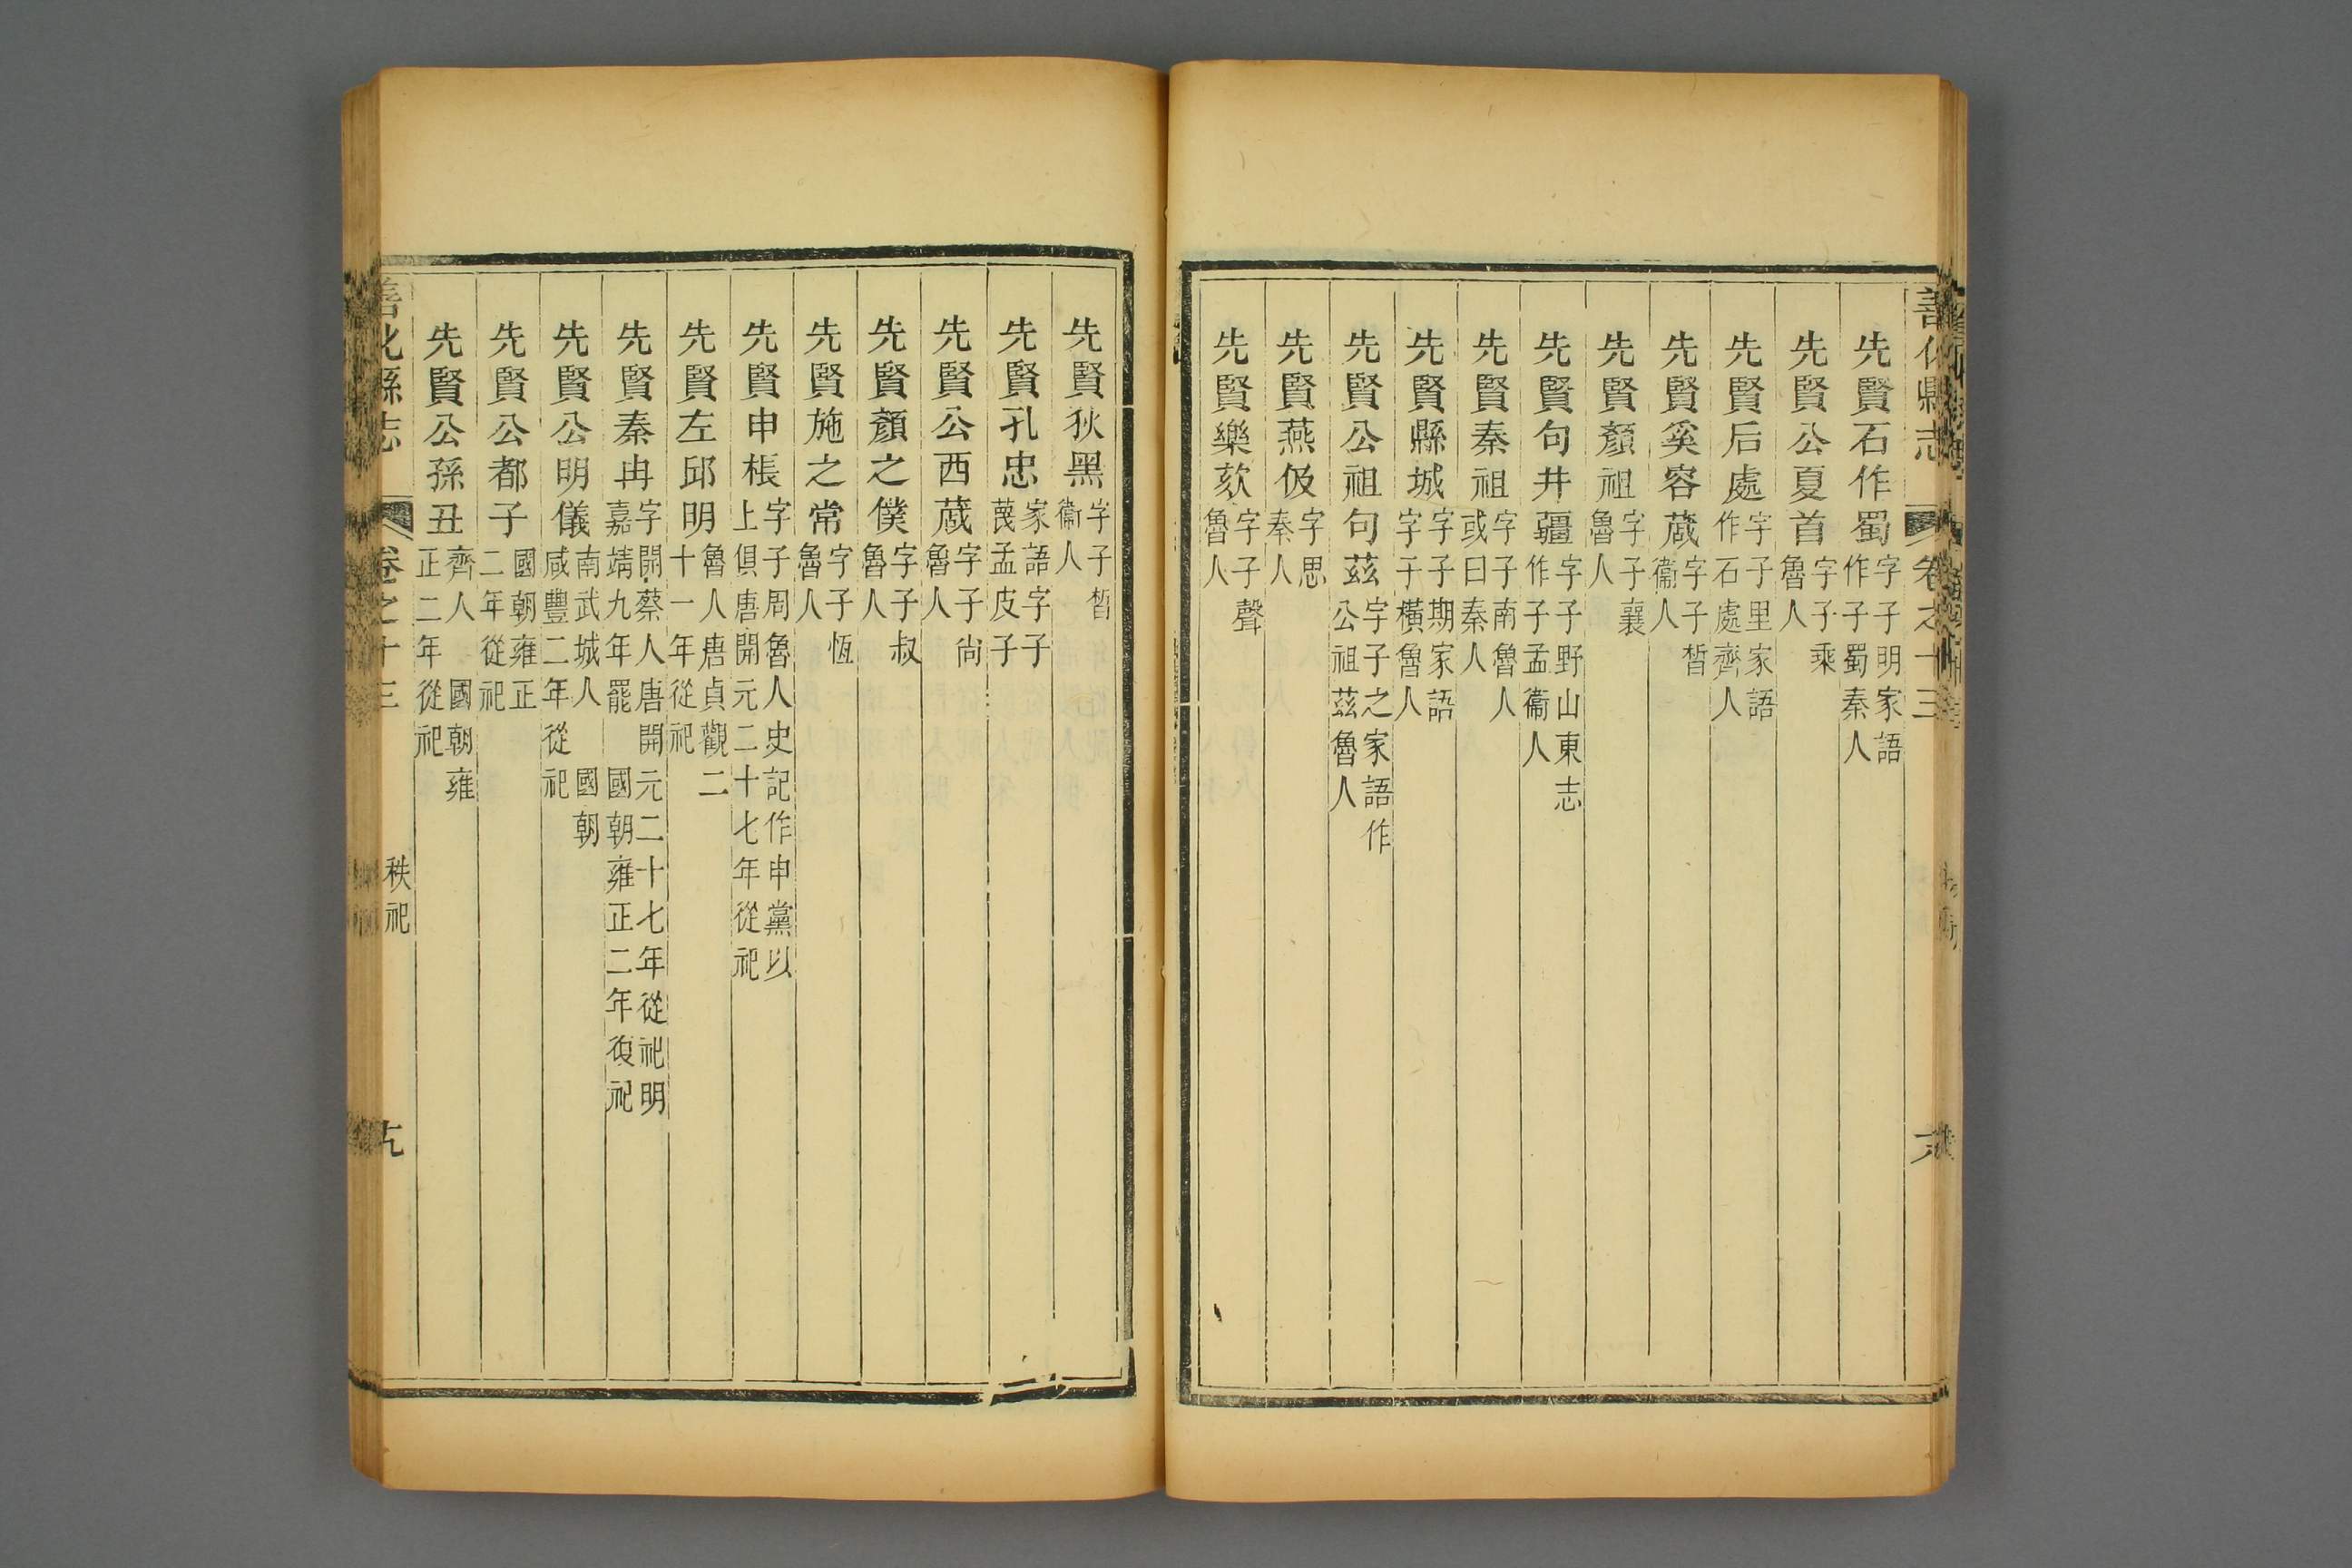 善化縣志 卷之十三
先賢石作蜀 字子明家語作子蜀秦人
先賢公夏首 字子乘魯人
先賢后處 字子里家語作石處齊人
先賢奚容蒧 字子皙衞人
先賢顏祖 字子襄魯人
先賢句井疆 字子野山東志作子孟衞人
先賢秦祖 字子南魯人或曰秦人
先賢縣城 字子期家語字子橫魯人
先賢公祖句茲 字子之家語作公祖茲魯人
先賢燕伋 字思秦人
先賢樂欬 字子聲魯人
先賢狄黑 字子皙衞人
先賢孔忠 家語字子蔑孟皮子
先賢公西蒧 字子尚魯人
先賢顏之僕 字子叔魯人
先賢施之常 字子恆魯人
先賢申棖 字子周魯人史記作申黨以上俱唐開元二十七年從祀
先賢左邱明 魯人唐貞觀二十一年從祀
先賢秦冉 字開蔡人唐開元二十七年從祀明嘉靖九年罷 國朝雍正二年復祀
先賢公明儀 南武城人 國朝咸豐二年從祀
先賢公都子 國朝雍正二年從祀
先賢公孫丑 齊人 國朝雍正二年從祀
善化縣志 卷之十三 秩祀